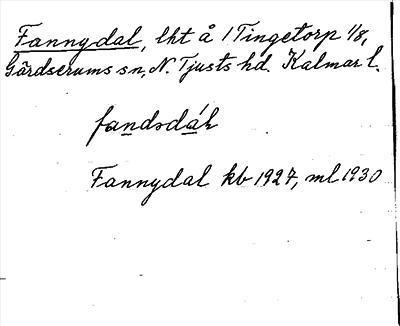 Fannydal, lht å 1 Tingetorp 1/8,
Gärdserums sn, N. Tjusts hd. Kalmar l.
fandsdáh
Fannydal kb 1927, ml 1930